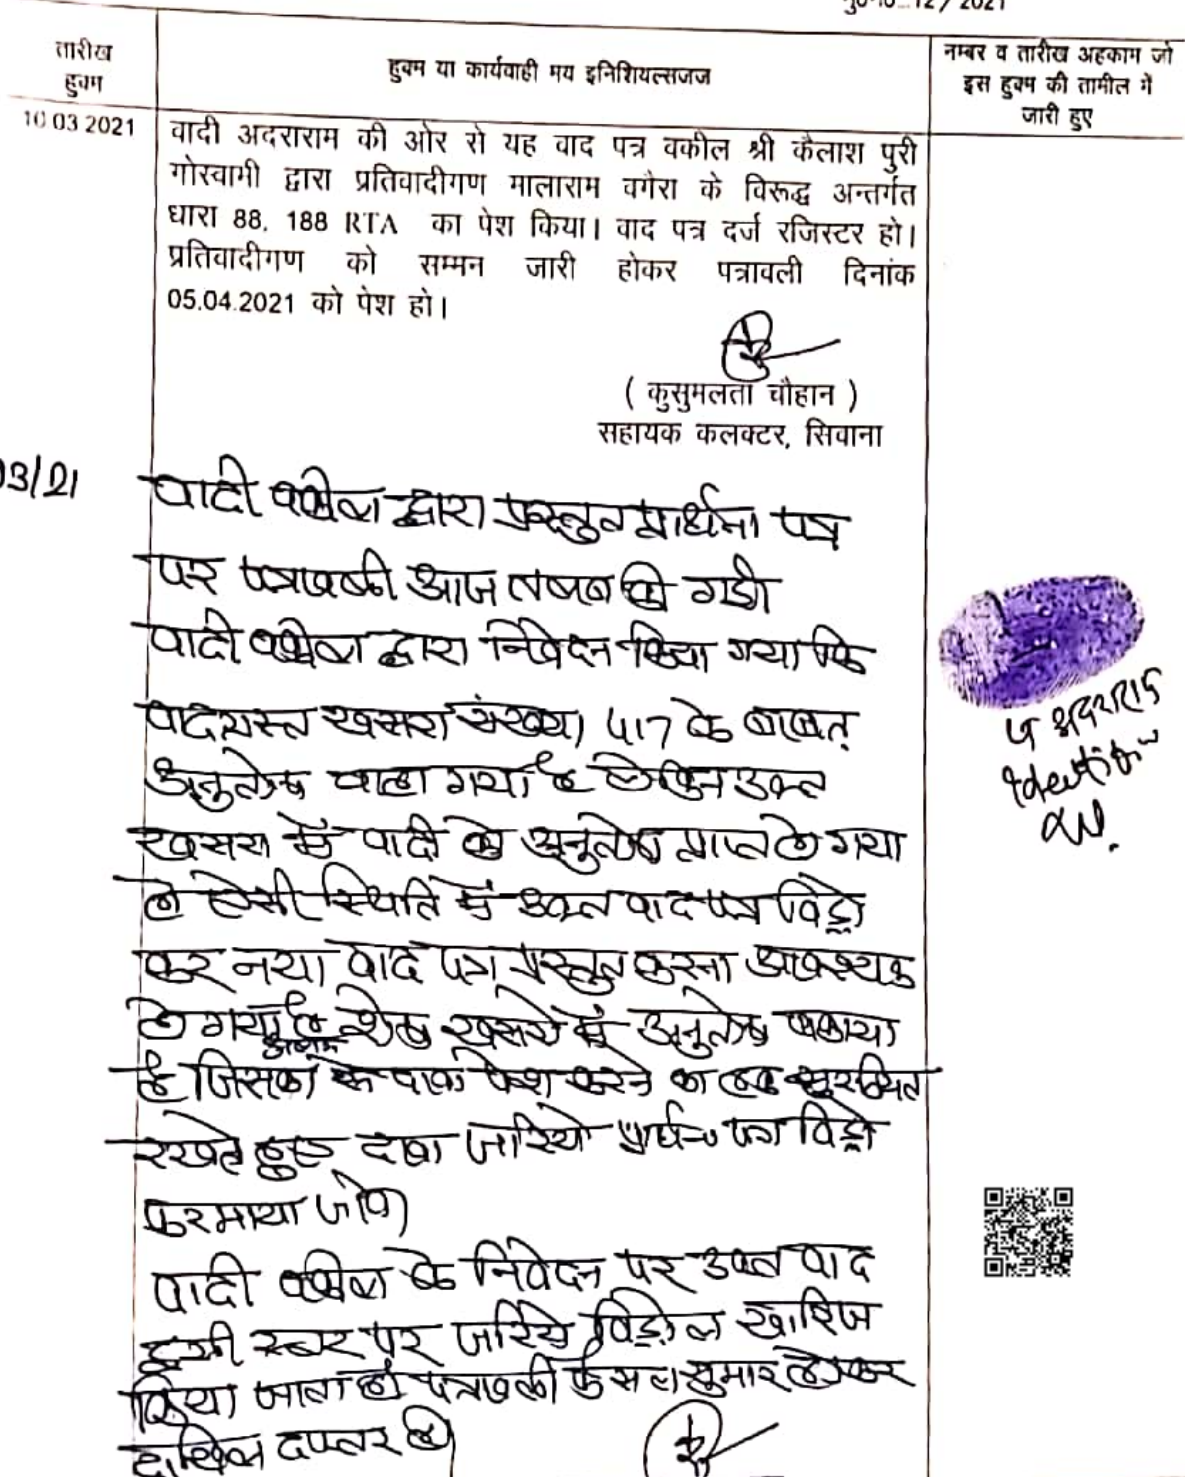 12/2021
तारीख
हुक्म
हुक्म या कार्यवाही मय इनिशियल्सजज
नम्बर व तारीख अहकाम जो
इस हुक्म की तामील में
जारी हुए
10 03 2021
वादी अदराराम की ओर से यह वाद पत्र वकील श्री कैलाश पुरी
गोस्वामी द्वारा प्रतिवादीगण मालाराम वगैरा के विरूद्ध अन्तर्गत
धारा 88, 188 RTA का पेश किया। वाद पत्र दर्ज रजिस्टर हो।
प्रतिवादीगण को सम्मन जारी होकर पत्रावली दिनांक
05.04.2021 को पेश हो।
( कुसुमलता चौहान )
सहायक कलक्टर, सिवाना
03/21
वादी वकील द्वारा प्रस्तुत प्रार्थना पत्र
पर पत्रावली आज तलब की गई।
वादी वकील द्वारा निवेदन किया गया कि
वादग्रस्त खसरा संख्या 417 के बाबत्
अनुतोष चाहा गया है लेकिन उक्त
खसरा में वादी को अनुतोष प्राप्त हो गया
है ऐसी स्थिति में उक्त वाद पत्र विड्रो
कर नया वाद पत्र प्रस्तुत करना आवश्यक
हो गया है शेष खसरो में अनुतोष बकाया
है जिसका वाद पेश करने का हक सुरक्षित
रखते हुए दावा जरिये प्रार्थना पत्र विड्रो
फरमाया जावे।
वादी वकील के निवेदन पर उक्त वाद
इसी स्तर पर जरिये विड्रोल खारिज
किया जाता है। पत्रावली फैसल शुमार होकर
दाखिल दफ्तर हो।
अदराराम